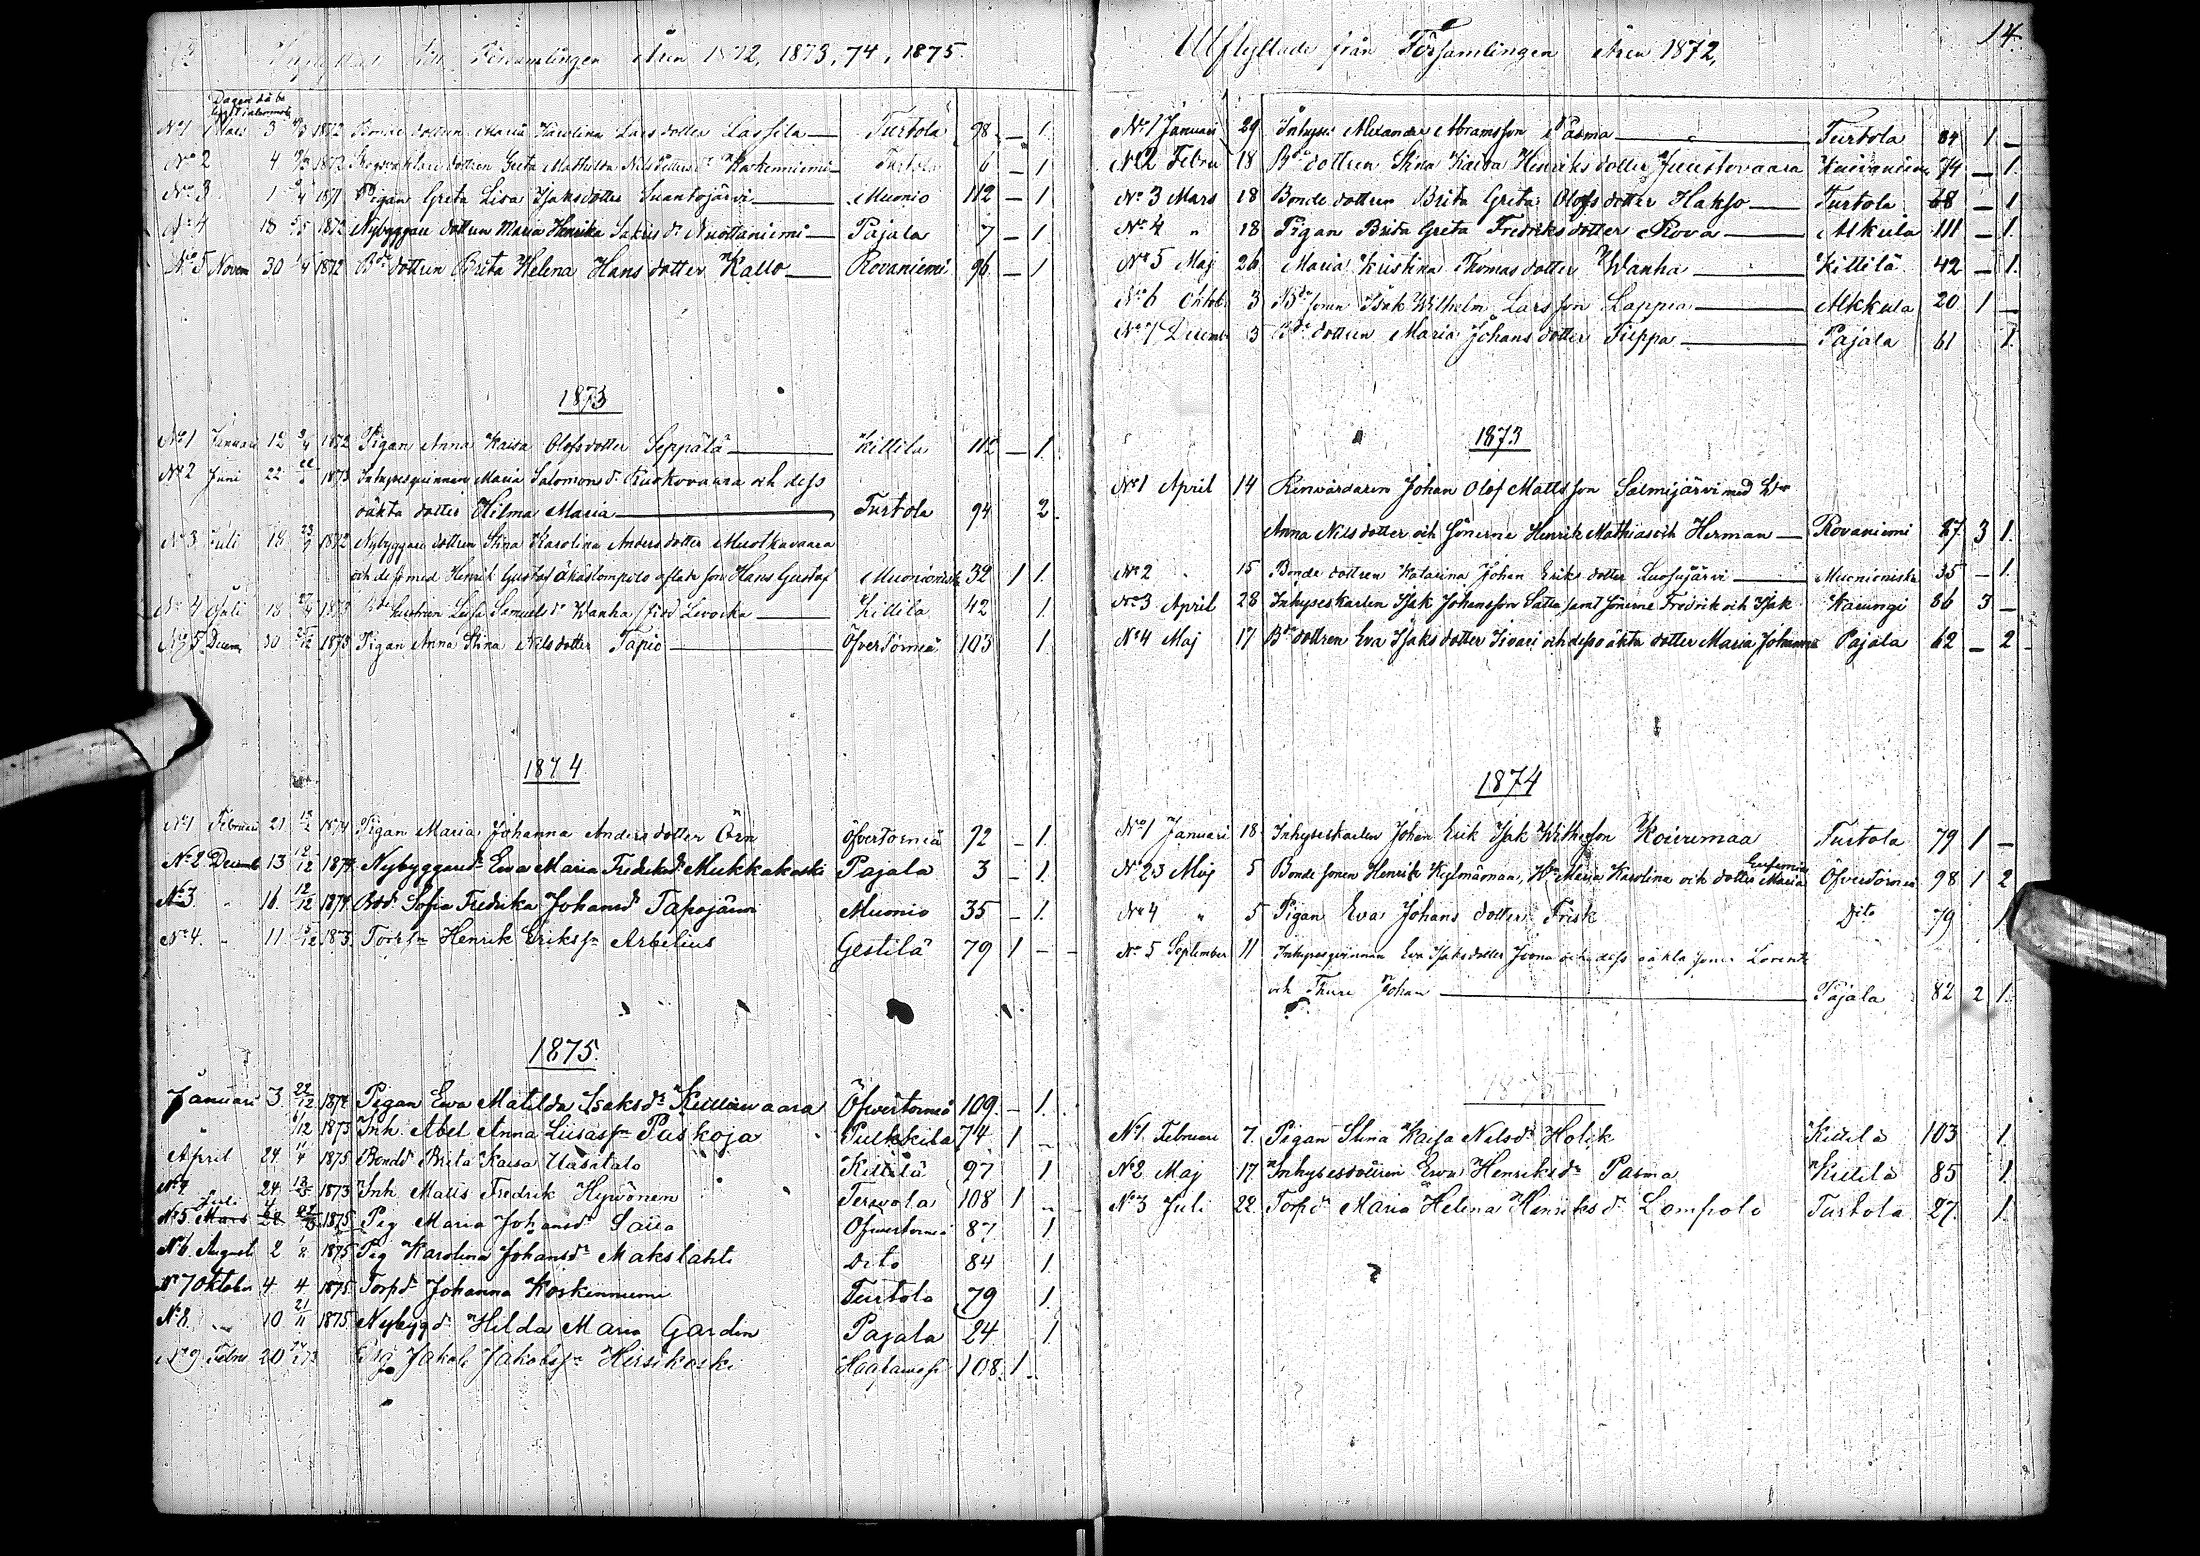 Församlingen Åren 1872, 1873, 74, 1875.
Dagen då be
No 1 Mars 3 1872 Bonde dottren Maria Karolina Lars dotter Lassila Turtola 98 — 1
No 2 4 1872 dottren Greta Mathilda Koskenniemi Turtola 6 — 1
No 3 1 1871 Pigan Greta Lisa Isaksdotter Suantojärvi Muonio 112 — 1
No 4 18 1872 Nybyggare dottren Maria Henrika Sakris dr Nuottaniemi Pajala 7 — 1
No 5 Novem 30 1872 Bde dottren Brita Helena Hans dotter Kallo Rovaniemi 96 — 1
1873
No 1 Januari 12 1872 Pigan Anna Kaisa Olofsdotter Seppälä Kittilä 112 — 1.
No 2 Juni 22 1873 Inhysesqvinnan Maria Salomons dr Ruokovaara och dess
oäkta dotter Hilma Maria Turtola 94 2.
No 3 Juli 18 1872 Nybyggare dottren Stina Karolina Anders dotter Muotkavaara
och dess med Henrik Gustaf Äkäslompolo aflade son Hans Gustaf Muonionisk 32 1 1.
No 4 Juli 18 1873 Lisa Samuels dr Wanha född Levoska Kittilä 42 1.
No 5 Decem 30 1873 Pigan Anna Stina Nils dotter Tapio ÖfverTorneå 103 1
1874
No 1 Februari 21 1874 Pigan Maria Johanna Anders dotter Örn ÖfverTorneå 72 — 1.
No 2 Decemb 13 12/12 1874 Nybyggared Eva Maria Fredriksd Mukkakoski Pajala 3 — 1.
No 3 " 16 12/12 1874 Bdd Sofia Fredrika Johansd Tapojärvi Muonio 35 — 1.
No 4. " 11 Henrik Eriksn Arbelius Gestilä 79 1 — —
1875.
Januari 3 22/12 1874 Pigan Ewa Matilda Isaksdr Kuttuwaara Öfwertorneå 109 — 1.
1873 Inh. Abel Anna Liisasn Paskoja Pulkkila 74 1 —
April 24 1875 Bondd Brita Kaisa Uasatalo Kittilä 97 1
No 4 24 1873 Inh Matts Fredrik Hyvönen Terwola 108 1 —
Juli
No 5 Mars 28 1875 Pig Maria Johansdr Satta Öfwertorneå 87 1
No 6. Augusti 2 1875 Pig Karolina Johansdr Makslahti Dito 84 1
No 7 Oktober 4 1875. Torpd Johanna Koskenniemi Turtola 79 1.
No 8 " 10 21/11 1875 Nybygdr Hilda Maria Gardin Pajala 24 1
No 9 Febru 20 Jakob Jakobsn Hirsikoski 108. 1 —
14.
Utflyttade från Församlingen Åren 1872,
No 1 Januari 29 Inhyses Alexander Abramsson Pasma Turtola 84 1 —
No 2 Febru 18 Bde dottren Stina Kaisa Henriks dotter Juustovaara Kuivaniemi 74 — 1.
No 3 Mars 18 Bonde dottren Brita Greta Olofs dotter Hakso Turtola 68 — 1
No 4 " 18 Pigan Brita Greta Fredriks dotter Rova Alkula 111 — 1.
No 5 Maj 26 Maria Kristina Thomas dotter Wanha Kittilä 42 — 1.
No 6 Oktob. 3 Bde sonen Isak Wilhelm Larsson Lappea Alkkula 20 1 —
No 7 Decemb 13 Bde dottren Maria Johans dotter Sieppa Pajala 61 1.
1873
No 1 April 14 Renvårdaren Johan Olof Mattsson Salmijärvi med Hu
Anna Nils dotter och sönerne Henrik Mathias och Herman Rovaniemi 87. 3 1.
No 2 " 15 Bonde dottren Katarina Johan Eriks dotter Luosujärvi Muonioniska 35 — 1.
No 3 April 28 Inhyseskarlen Isak Johansson Satta samt sönerne Fredrik och Isak Karungi 86 3 —
No 4 Maj 17 Bde dottren Eva Isaks dotter Sivari och dess oäkta dotter Maria Johanna Pajala 62 — 2
1874
No 1 Januari 18 Inhyseskarlen Johan Erik Isak Wilhsson Koivumaa Turtola 79 1 —
Eufemia
No 2 3 Maj 5 Bonde sonen Henrik Kylmämaa, Hu Maria Karolina och dotter Maria Öfvertorneå 98 1 2
No 4 " 5 Pigan Eva Johans dotter Frisk Dito 79 1
No 5 September 11 Inhysesqvinnan Eva Isaksdotter Juna och dess oäkta söner Lorents
och Thure Johan Pajala 82 2 1.
1875
No 1. Februari 7. Pigan Stina Kaisa Nilsdr Holck Kittilä 103 1.
No 2 Maj 17 Inhysesdottren Ewa Henriksdr Pasma Kittilä 85 1.
No 3 Juli 22. Torpdr Maria Helena Henriksdr Lompolo Turtola 27. 1.